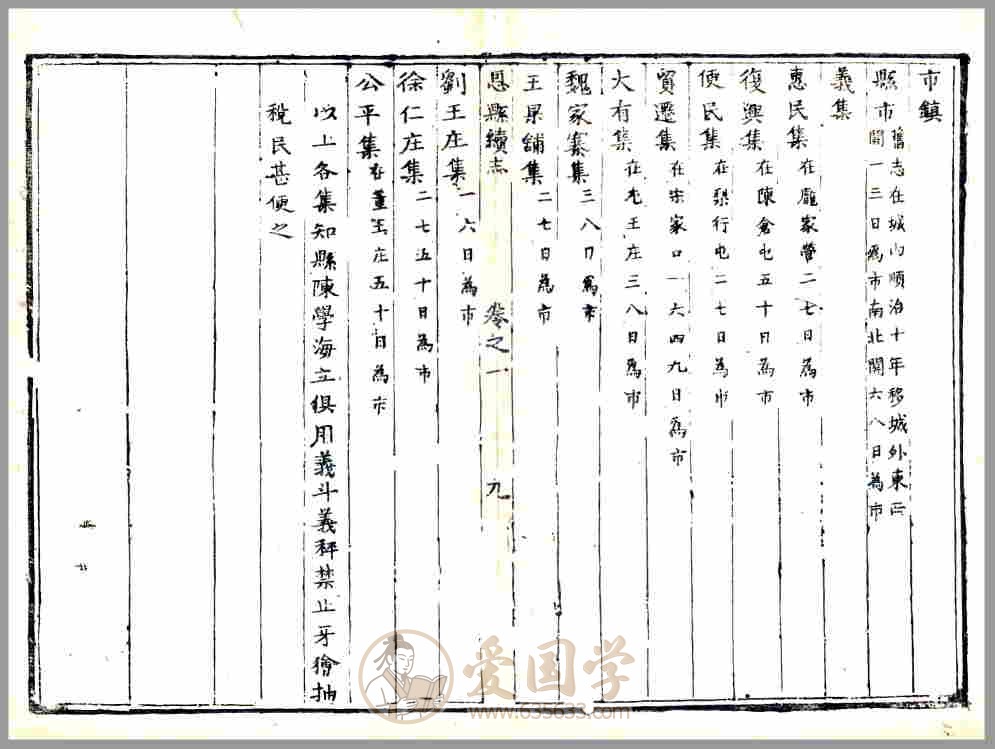 市鎮
縣市舊志在城内順治十年移城外東西
開一三日為市南北開六八日為市
義集
惠民集在龐家營二七日為市
復興集在陳倉屯五十日為市
便民集在梨行屯二七日為市
貿遷集在宋家口一六四九日為市
大有集在尤王庄三八日為市
魏家寨集三八日為市
王杲舖集二七日為市
恩縣續志 卷之一 九
劉王庄集一六日為市
徐仁庄集二七五十日為市
公平集在董王庄五十日為市
以上各集知縣陳學海立俱用義斗義秤禁止牙獪抽
稅民甚便之
爱国学
www.635633.com